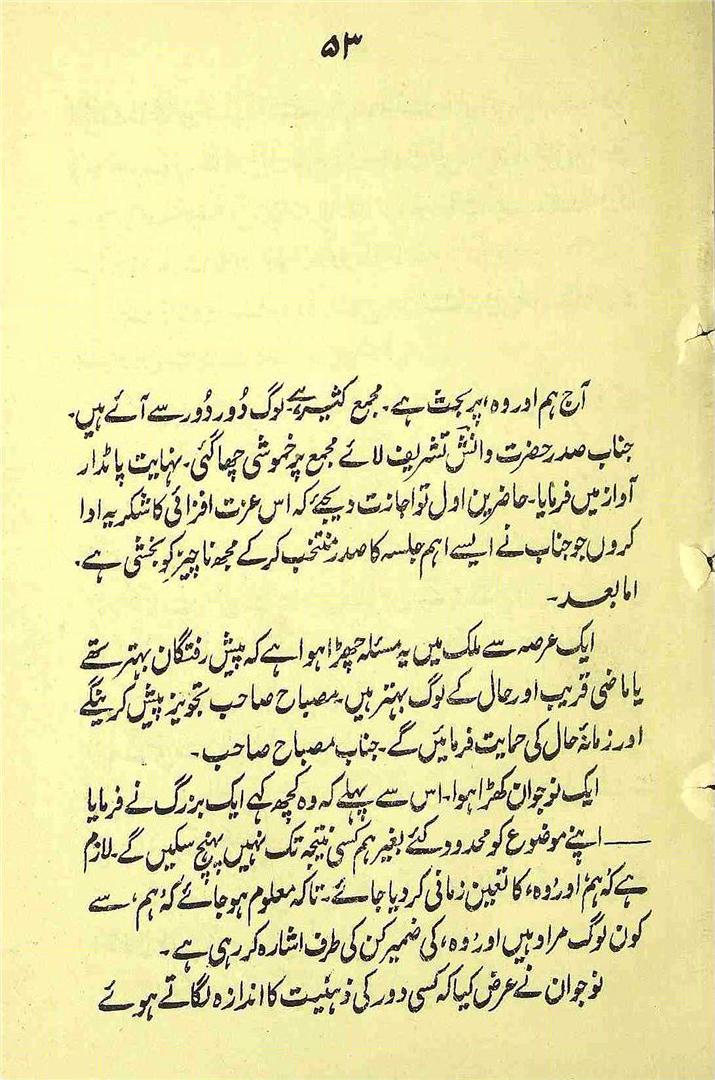 ۵۳
آج ہم اور وہ، پر بحث ہے۔ مجمع کثیر ہے۔ لوگ دُور دُور سے آئے ہیں۔
جناب صدر حضرت دانش تشریف لائے مجمع پر خموشی چھا گئی۔ نہایت پاٹدار
آواز میں فرمایا۔ حاضرین اول تو اجازت دیجئے کہ اس عزت افزائی کا شکریہ ادا
کروں جو جناب نے ایسے اہم جلسہ کا صدر منتخب کر کے مجھ ناچیز کو بخشی ہے۔
اما بعد۔
ایک عرصہ سے ملک میں یہ مسئلہ چھڑا ہوا ہے کہ پیش رفتگان بہتر تھے
یا ماضی قریب اور حال کے لوگ بہتر ہیں۔ مصباح صاحب تجویز پیش کرینگے
اور زمانۂ حال کی حمایت فرمائیں گے۔ جناب مصباح صاحب۔
ایک نوجوان کھڑا ہوا۔ اس سے پہلے کہ وہ کچھ کہے ایک بزرگ نے فرمایا
— اپنے موضوع کو محدود کئے بغیر ہم کسی نتیجہ تک نہیں پہنچ سکیں گے۔ لازم
ہے کہ ‘ہم’ اور ‘وہ’ کا تعین زمانی کر دیا جائے۔ تاکہ معلوم ہو جائے کہ ‘ہم’ سے
کون لوگ مراد ہیں اور ‘وہ’ کی ضمیر کن کی طرف اشارہ کر رہی ہے۔
نوجوان نے عرض کیا کہ کسی دور کی ذہنیت کا اندازہ لگاتے ہوئے